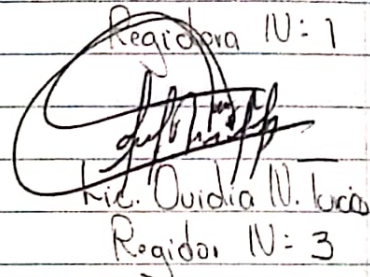 Regidora N: 1
Lic. Ovidia N. Lucia
Regidor N: 3